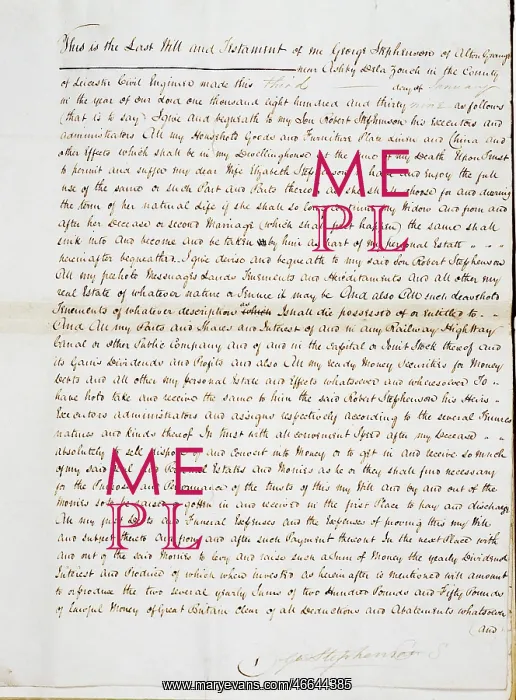 This is the Last Will and Testament of me George Stephenson of Alton Grange
near Ashby Dela Zouch in the County
of Leicester Civil Engineer made this third day of January
in the year of our Lord one thousand eight hundred and thirty as follows
(that is to say) I give and bequeath to my Son Robert Stephenson his Executors and
administrators All my Household Goods and Furniture Plate Linen and China and
other Effects which shall be in my Dwellinghouse at the time of my Death Upon Trust
to permit and suffer my dear Wife Elizabeth Stephenson to have and enjoy the full
use of the same or such Part and Parts thereof as she shall choose for and during
the term of her natural life if she shall so long continue my Widow and from and
after her Decease or second Marriage (which shall first happen) the same shall
sink into and become and be taken by him as part of my personal Estate
hereinafter bequeathed. I give devise and bequeath to my said Son Robert Stephenson
All my freehold Messuages Lands Tenements and Hereditaments and all other my
real Estate of whatever nature or Tenure it may be And also All such leasehold
Tenements of whatever description I shall die possessed of or entitled to.
And All my Parts and Shares and Interest of and in any Railway Highway
Canal or other Public Company and of and in the Capital or Joint Stock thereof and
its Gains Dividends and Profits and also All my ready Money Securities for Money
Debts and all other my personal Estate and Effects whatsoever and wheresoever To
have hold take and receive the same to him the said Robert Stephenson his Heirs
Executors administrators and assigns respectively according to the several Tenures
natures and kinds thereof In trust with all convenient Speed after my Decease
absolutely to sell dispose of and Convert into Money or to get in and receive so much
of my said real and personal Estates and Monies as he or they shall find necessary
for the Purposes and Performance of the trusts of this my Will And by and out of the
Monies so to be raised gotten in and received in the first Place to pay and discharge
All my just Debts and Funeral Expenses and the Expenses of proving this my Will
And subject thereto And from and after such Payment thereout In the next Place with
and out of the said Monies to levy and raise such a Sum of Money the yearly Dividend
Interest and Produce of which when invested as hereinafter is mentioned will amount
to or produce the two several yearly Sums of two Hundred Pounds and Fifty Pounds
of lawful Money of Great Britain clear of all Deductions and Abatements whatsoever
(and
Geo Stephenson
ME
PL
ME
PL
www.maryevans.com/46644385